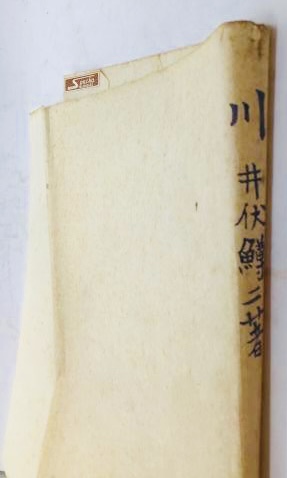 川
井伏鱒二著